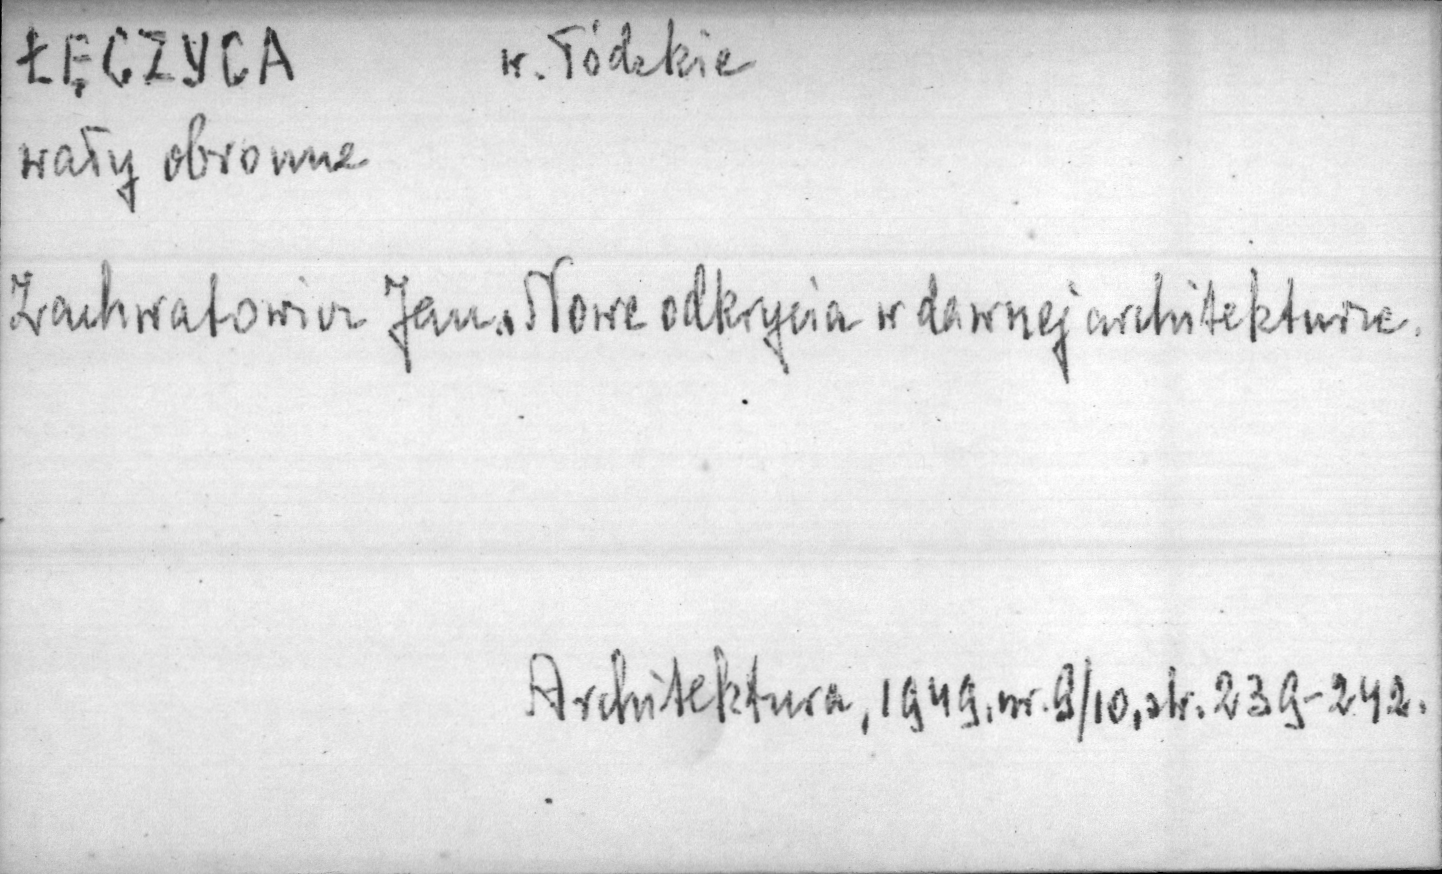 ŁĘCZYCA w. Łódzkie
wały obronne
Zachwatowicz Jan. Nowe odkrycia w dawnej architekturze.
Architektura, 1949. nr. 9/10, str. 239-242.